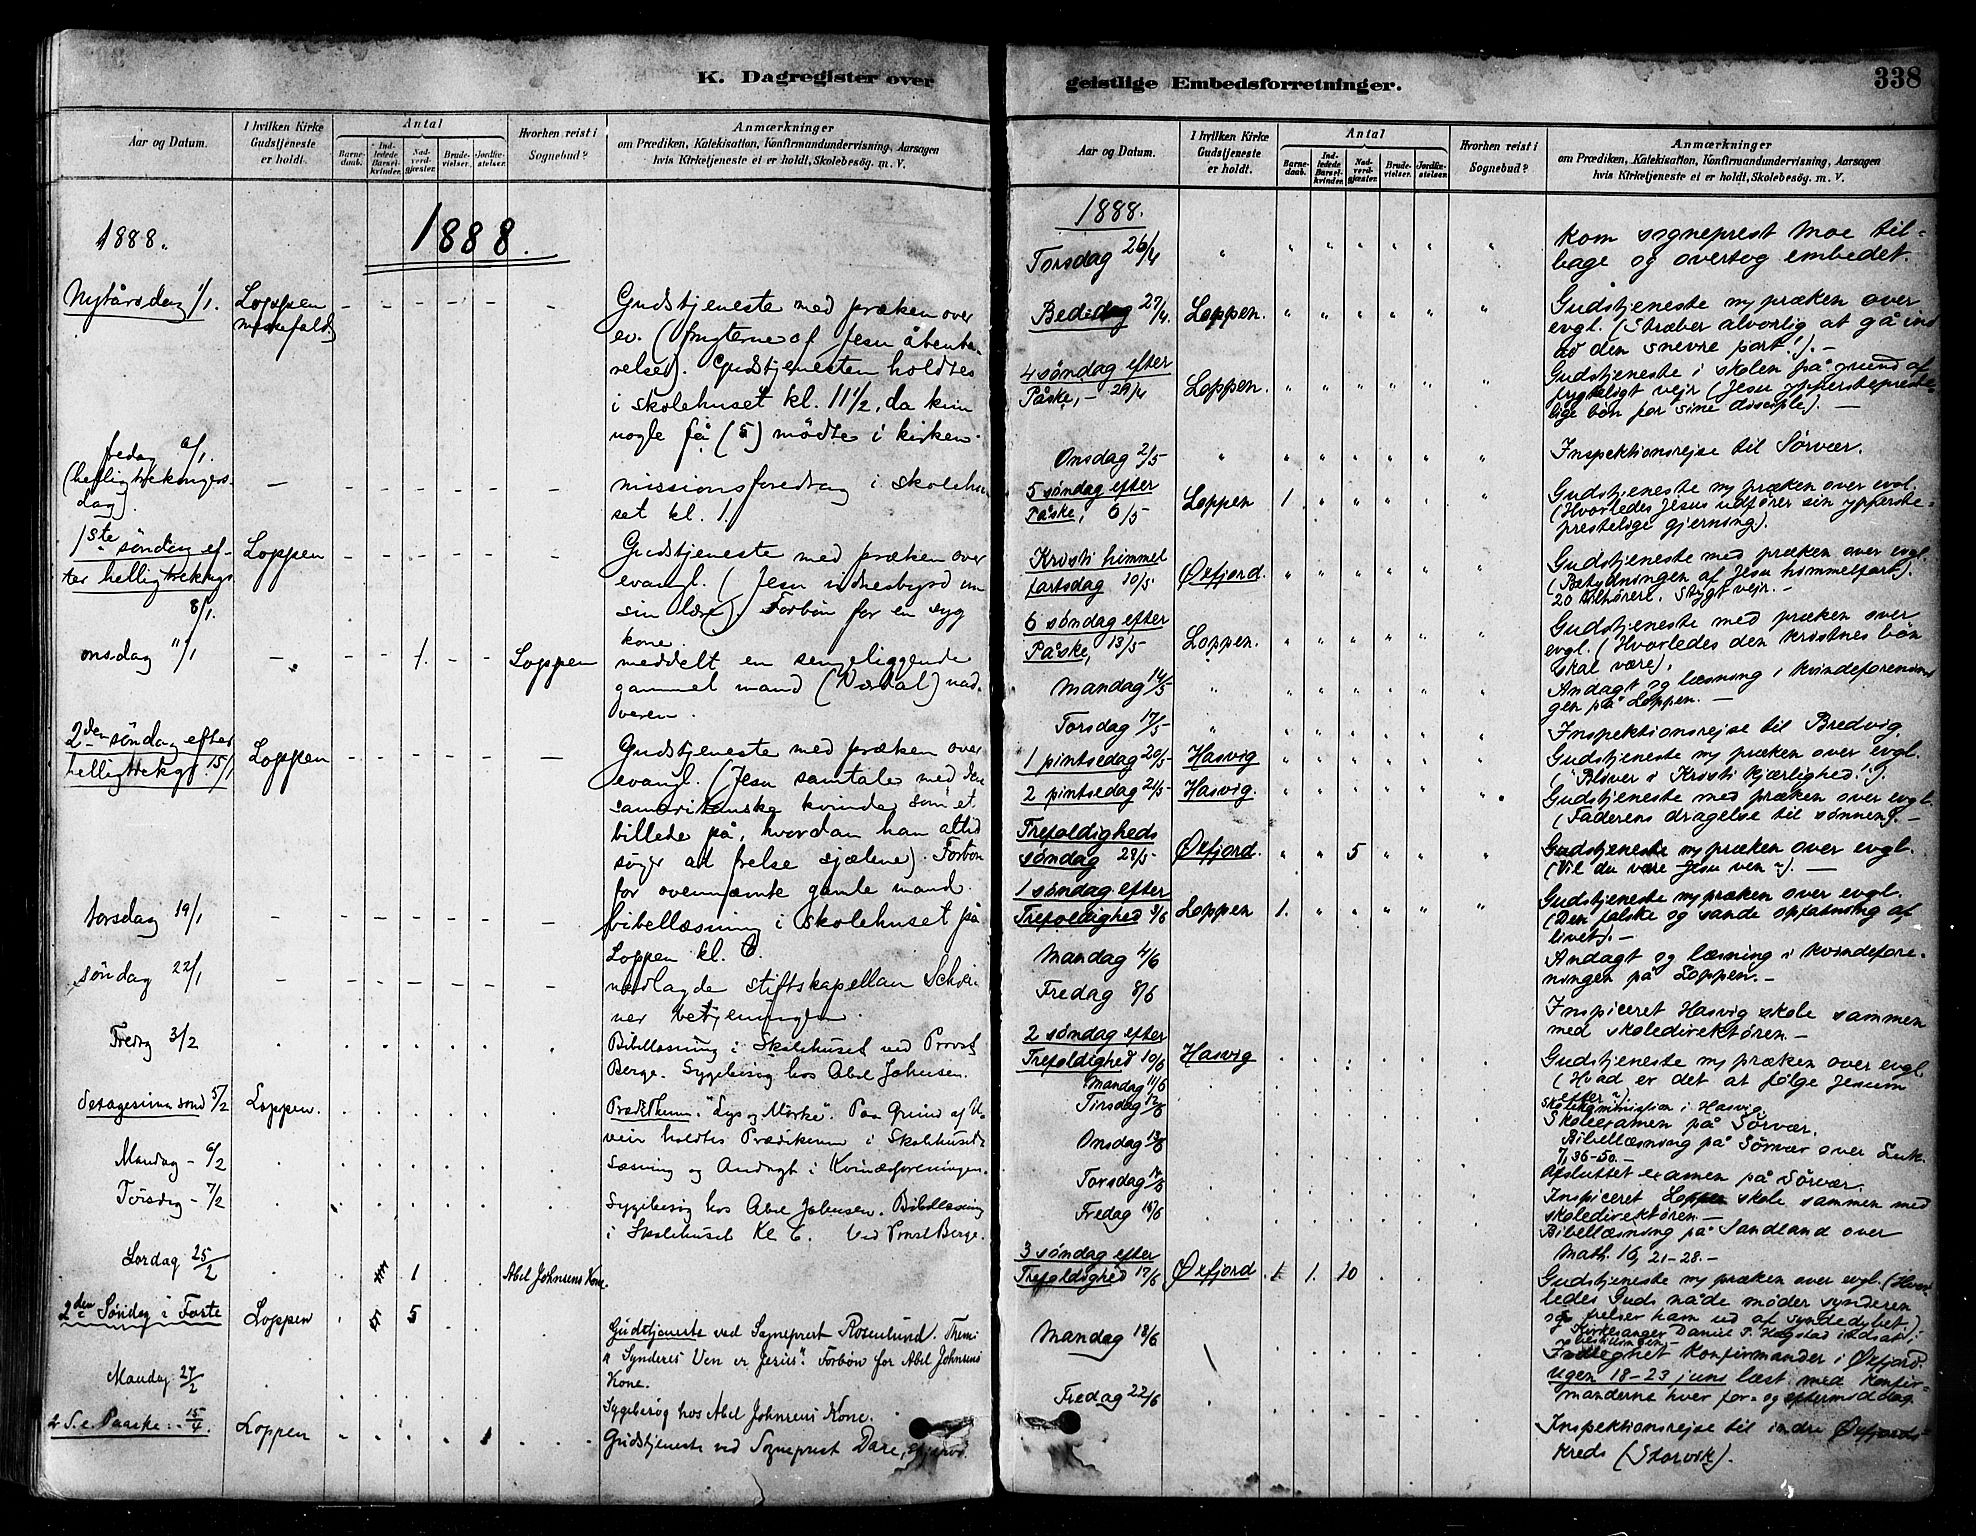 K. Dagregister over
Aar og Datum.
I hvilken Kirke Gudstjeneste er holdt.
Antal
Barnedaab.
Indledede Barselkvinder.
Nadverdgjæster.
Brudevielser.
Jordfæstelser.
Hvorhen reist i Sognebud?
Anmærkninger
om Prædiken, Katekisation, Konfirmandundervisning, Aarsagen
hvis Kirketjeneste ei er holdt, Skolebesøg. m. V.
1888.
1888.
Nytårsdag 1/1. Loppen - - - - - - Gudstjeneste med præken over
ev. (frugterne af Jesu åbenba-
relse). Gudstjenesten holdtes
i skolehuset kl. 11 1/2, da kun
nogle få (5) mødte i kirken.
fredag 6/1.
(helligtrekonger-
dag). - - - - - - - missionsforedrag i skolehu-
set kl. 1.
1ste søndag ef-
ter helligtrekkgs. Loppen - - - - - - Gudstjeneste med præken over
8/1.
evangl. (Jesu vidnesbyrd om
sin lære). Forbøn for en syg
kone.
onsdag 11/1 - - - 1. - - Loppen meddelt en sengeliggende
gammel mand () nad-
veren.
2den søndag efter
helligtrekgr. 15/1 Loppen - - - - - - Gudstjeneste med præken over
evangl. (Jesu samtale med den
samaritanske kvinde som et
billede på, hvordan han altid
søger at frelse sjælene). Forbøn
for ovennævnte gamle mand.
torsdag 19/1 - - - - - - - bibellæsning i skolehuset på
Loppen kl. 6.
søndag 22/1 - - - - - - - nedlagde stiftskapellan
betjeningen.
Fredag 3/2 Bibellæsning i Skolehuset ved Provst
Berge. Sygebesøg hos Abel Johnsen.
Sexagesima sønd 5/2 Loppen. Præd. Thema. "Lys og Mørke". Paa Grund af U-
veir holdtes Prædikenen i Skolehuset.
Mandag - 6/2 Læsning og Andagt i Kvindeforeningen.
Tirsdag - 7/2 Sygebesøg hos Abel Johnsen. Bibellæsning
i Skolehuset Kl 6. ved Provst Berge.
Lørdag 25/2 1 Abel Johnsens Kone.
2den Søndag i Faste Loppen 5 Gudstjeneste ved Sogneprest Rosenlund. Thema
"Synderes Ven er Jesus". Forbøn for Abel Johnsens
Kone.
Mandag 27/2 Sygebesøg hos Abel Johnsens Kone.
2 S. e. Paaske. 15/4. Loppen Gudstjeneste ved Sogneprest Dare,
geistlige Embedsforretninger.
338
Aar og Datum.
I hvilken Kirke Gudstjeneste er holdt.
Antal
Barnedaab.
Indledede Barselkvinder.
Nadverdgjæster.
Brudevielser.
Jordfæstelser.
Hvorhen reist i Sognebud?
Anmærkninger
om Prædiken, Katekisation, Konfirmandundervisning, Aarsagen
hvis Kirketjeneste ei er holdt, Skolebesøg. m. V.
1888.
Torsdag 26/4 " " " " " " " kom sogneprest Moe til-
bage og overtog embedet.
Bededag 27/4. Loppen. " " " " " " Gudstjeneste m præken over
evgl. (Stræber alvorlig at gå ind
ad den snevre port!). -
4 søndag efter
Påske, - 29/4 Loppen. " " " " " " Gudstjeneste i skolen på grund af
frygteligt vejr (Jesu ypperstepreste-
lige bøn for sine disciple). -
Onsdag 2/5 " " " " " " " Inspektionsrejse til Sørvær.
5 søndag efter
Påske, 6/5 Loppen 1. " " " " " Gudstjeneste m præken over evgl.
(Hvorledes Jesus udfører sin ypperste-
prestelige gjerning).
Kristi himmel
fartsdag 10/5 Øxfjord. " " " " " " Gudstjeneste med præken over evgl.
(Betydningen af Jesu himmelfart).
20 tilhørere. Stygt vejr. -
6 søndag efter
Påske, 13/5 Loppen. " " " " " " Gudstjeneste med præken over
evgl. (Hvorledes den kristnes bøn
skal være).
Mandag 14/5 " " " " " " " Andagt og læsning i kvindeforenin-
gen på Loppen. -
Torsdag 17/5 " " " " " " " Inspektionsrejse til Bredvig.
1 pintsedag 20/5 Hasvig " " " " " " Gudstjeneste m præken over evgl.
("Bliver i Kristi Kjærlighed!").
2 pintsedag 21/5 Hasvig. " " " " " " Gudstjeneste med præken over evgl.
(Faderens dragelse til sønnen). -
Trefoldigheds
søndag 28/5 Øxfjord. " " 5 " " " Gudstjeneste m præken over evgl.
(Vil du være Jesu ven?). -
1 søndag efter
Trefoldighed 3/6 Loppen 1. " " " " " Gudstjeneste m præken over evgl.
(Den falske og sande opfatning af
livet). -
Mandag 4/6 Andagt og læsning i kvindefore-
ningen på Loppen. -
Fredag 8/6 Inspiceret Hasvig skole sammen
med skoledirektøren. -
2 søndag efter
Trefoldighed 10/6 Hasvig Gudstjeneste m præken over evgl
(Hvad er det at følge Jesum
efter?).
Mandag 11/6 skolekommission i Hasvig.
Tirsdag 12/6 Skoleexamen på Sørvær.
Onsdag 13/6 Bibellæsning på Sørvær over Luk.
7,36-50. -
Afsluttet examen på Sørvær.
Torsdag Inspiceret Loppen skole sammen med
skoledirektøren. -
Fredag Bibellæsning på Sandland over
Math. 16, 21-28. -
3 søndag efter
Trefoldighed 17/6 Øxfjord 1 1. 10 Gudstjeneste m præken over evgl. (Hvor-
ledes Guds nåde møder synderen
og frelser ham ud af syndedybet.)
Kirkesanger Daniel P. Hegstad indsat i
bestillingen
Mandag 18/6 Indtegnet konfirmander i Øxfjord.
Ugen 18-23 juni læst med konfir-
manderne hver for- og eftermiddag.
Fredag 22/6 Inspektionsrejse til indre Øxfjords
kreds (Storvik).